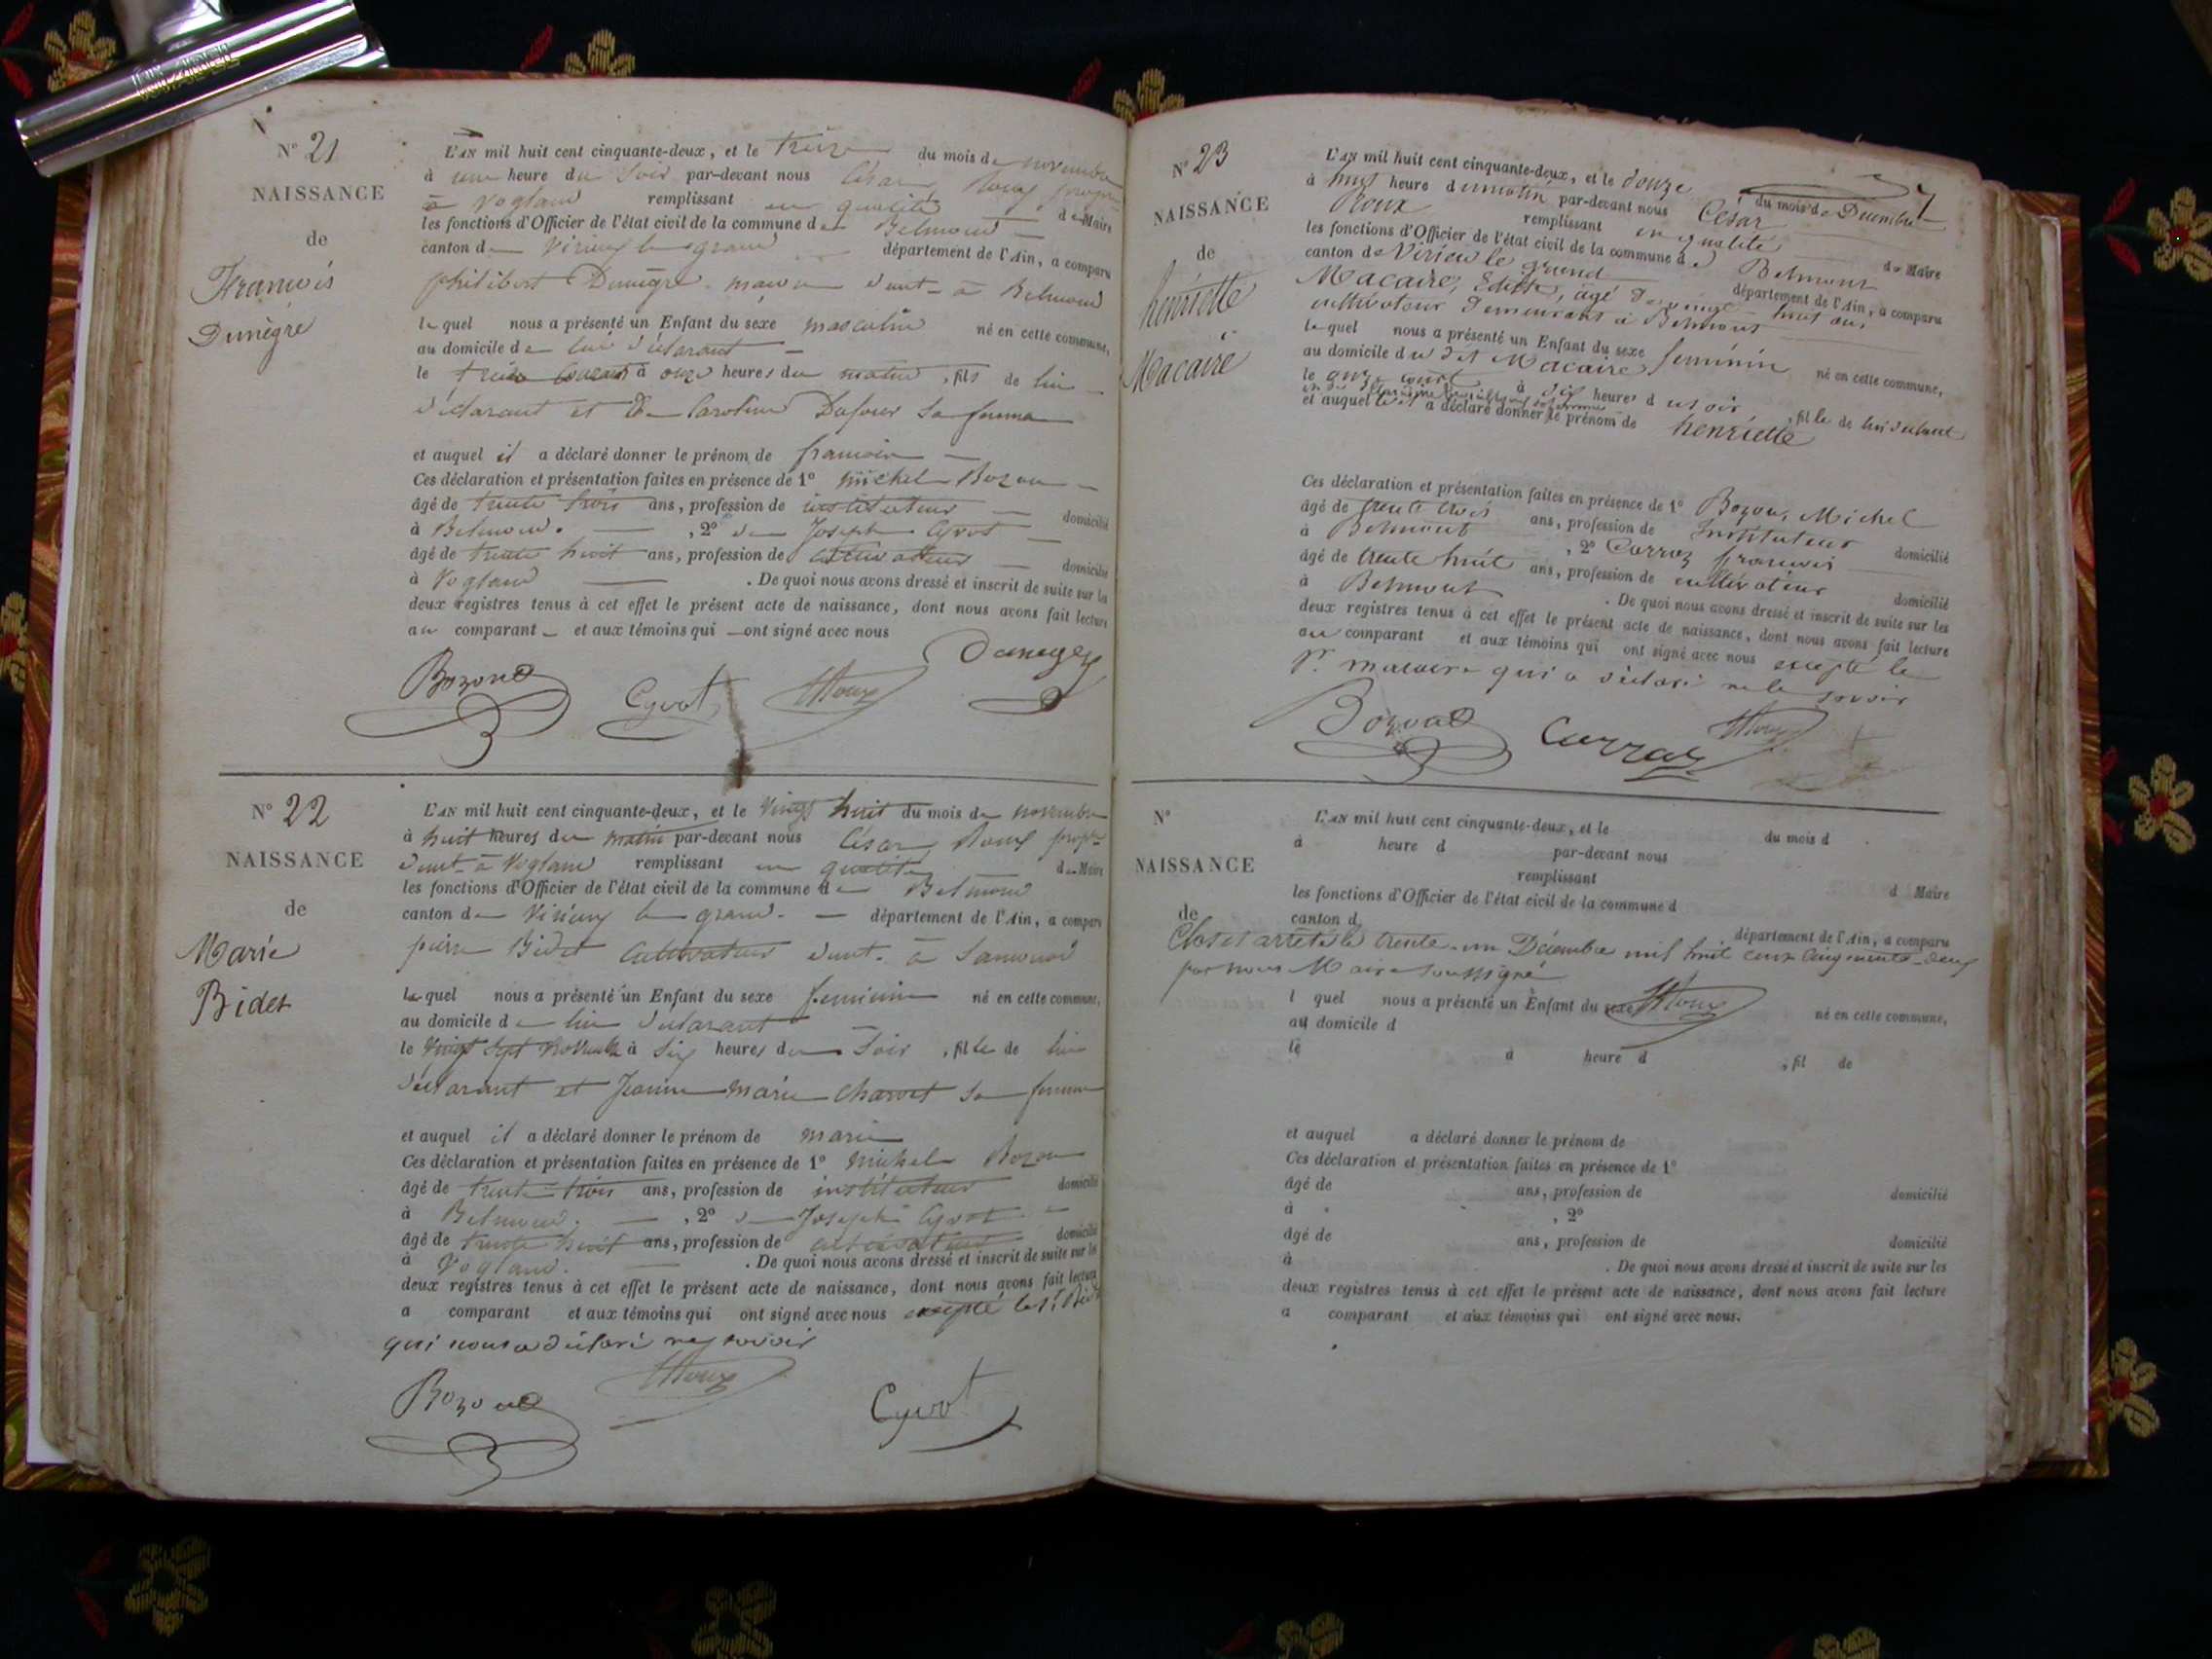 N° 21
NAISSANCE
de
François
Dunègre
L'AN mil huit cent cinquante-deux, et le treize du mois de novembre
à une heure du soir par-devant nous César Roux propre
à Vogland remplissant en qualité de Maire
les fonctions d'Officier de l'état civil de la commune de Belmond
canton de Virieux le grand département de l'Ain, a comparu
philibert Dunègre maçon demt à Belmond
lequel nous a présenté un Enfant du sexe masculin né en cette commune,
au domicile de lui déclarant
le treize courant à onze heures du matin, fils de lui
déclarant et de Caroline Dufour sa femme
et auquel il a déclaré donner le prénom de françois
Ces déclaration et présentation faites en présence de 1° Michel Bozon
âgé de trente trois ans, profession de instituteur domicilié
à Belmond. , 2° de Joseph Cyvot
âgé de trente huit ans, profession de cultivateur domicilié
à Vogland . De quoi nous avons dressé et inscrit de suite sur les
deux registres tenus à cet effet le présent acte de naissance, dont nous avons fait lecture
au comparant et aux témoins qui ont signé avec nous
Bozon Cyvot Roux
N° 22
NAISSANCE
de
Marie
Bidet
L'AN mil huit cent cinquante-deux, et le vingt huit du mois de novembre
à huit heures du matin par-devant nous César Roux propre
demt à Vogland remplissant en qualité de Maire
les fonctions d'Officier de l'état civil de la commune de Belmond
canton de Virieux le grand. département de l'Ain, a comparu
pierre Bidet cultivateur demt. à
lequel nous a présenté un Enfant du sexe feminin né en cette commune,
au domicile de lui déclarant
le vingt sept novembre à six heures du soir, fille de lui
déclarant et Jeanne marie Charvet sa femme
et auquel il a déclaré donner le prénom de marie
Ces déclaration et présentation faites en présence de 1° Michel Bozon
âgé de trente trois ans, profession de instituteur domicilié
à Belmond. , 2° de Joseph Cyvot
âgé de trente huit ans, profession de cultivateur domicilié
à Vogland. . De quoi nous avons dressé et inscrit de suite sur les
deux registres tenus à cet effet le présent acte de naissance, dont nous avons fait lecture
a comparant et aux témoins qui ont signé avec nous excepté le Sr Bidet
qui nous a déclaré ne savoir
Bozon Roux Cyvot
N° 23
NAISSANCE
de
henriette
Macaire
L'AN mil huit cent cinquante-deux, et le douze du mois de Decembre
à huit heure du matin par-devant nous César
Roux remplissant en qualité de Maire
les fonctions d'Officier de l'état civil de la commune de Belmont
canton de Virieu le grand département de l'Ain, a comparu
Macaire, âgé de vingt huit ans,
cultivateur demeurant à Belmont
lequel nous a présenté un Enfant du sexe feminin né en cette commune,
au domicile du dit Macaire,
le onze court à dix heures du soir, fille de lui déclarant
et auquel il a déclaré donner le prénom de henriette
Ces déclaration et présentation faites en présence de 1° Bozon, Michel
âgé de trente trois ans, profession de Instituteur domicilié
à Belmont , 2° Carroz françois
âgé de trente huit ans, profession de cultivateur domicilié
à Belmont . De quoi nous avons dressé et inscrit de suite sur les
deux registres tenus à cet effet le présent acte de naissance, dont nous avons fait lecture
au comparant et aux témoins qui ont signé avec nous excepté le
Sr. macaire qui a déclaré ne le savoir
Bozon Roux
N°
NAISSANCE
de
L'AN mil huit cent cinquante-deux, et le du mois d
à heure d par-devant nous
remplissant d Maire
les fonctions d'Officier de l'état civil de la commune d
canton d département de l'Ain, a comparu
Clos et arrêté le trente-un Décembre mil huit cent cinquante-deux
par nous Maire soussigné
l quel nous a présenté un Enfant du sexe né en cette commune,
Roux
au domicile d
le à heure d , fil de
et auquel a déclaré donner le prénom de
Ces déclaration et présentation faites en présence de 1°
âgé de ans, profession de domicilié
à , 2°
âgé de ans, profession de domicilié
à . De quoi nous avons dressé et inscrit de suite sur les
deux registres tenus à cet effet le présent acte de naissance, dont nous avons fait lecture
a comparant et aux témoins qui ont signé avec nous.